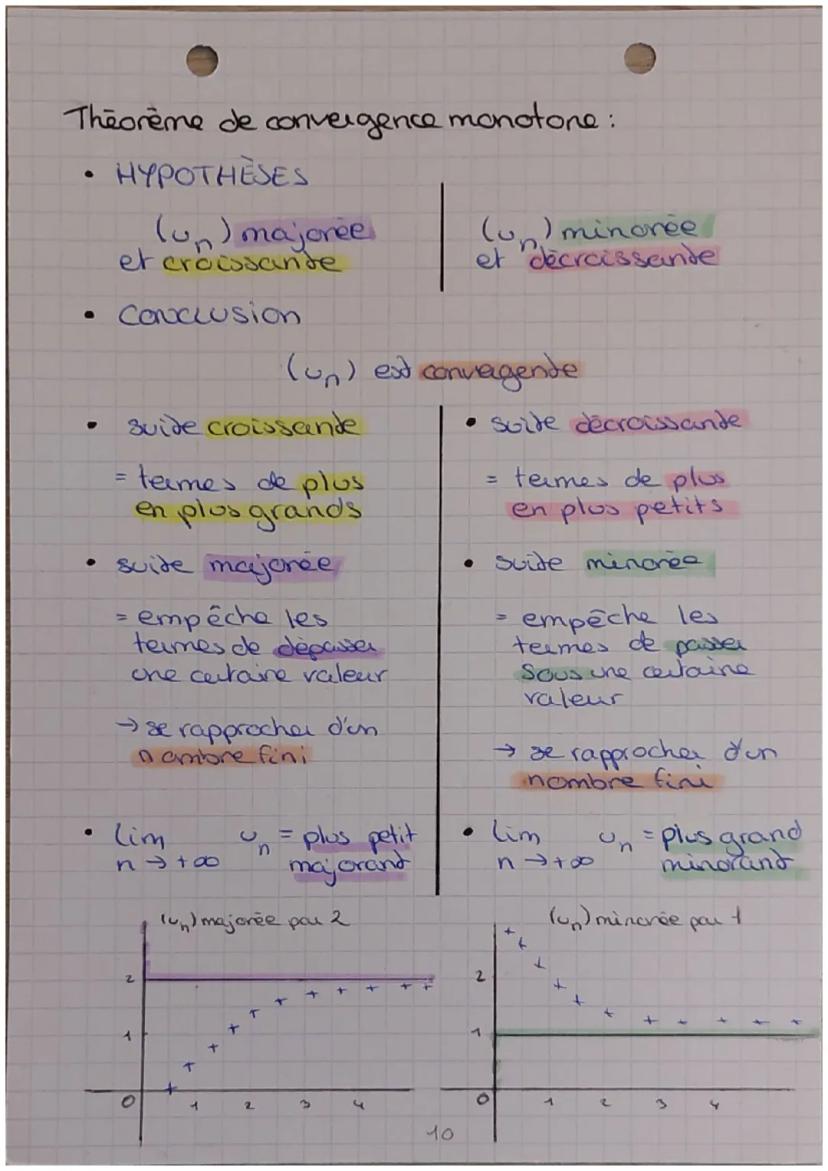 Théorème de convergence monotone :
• HYPOTHÈSES
(un) majorée
et croissante
(un) minorée
et décroissante
• Conclusion
(un) est convergente
• suite croissante
= termes de plus
en plus grands
• suite majorée
= empêche les
termes de dépasser
une certaine valeur
→ se rapprocher d'un
nombre fini
• lim un = plus petit
n → +∞ majorant
• suite décroissante
= termes de plus
en plus petits
• suite minorée
= empêche les
termes de passer
sous une certaine
valeur
→ se rapprocher d'un
nombre fini
• lim un = plus grand
n → +∞ minorant
(un) majorée par 2
2
1
0 1 2 3 4
(un) minorée par 1
2
1
0 1 2 3 4
10